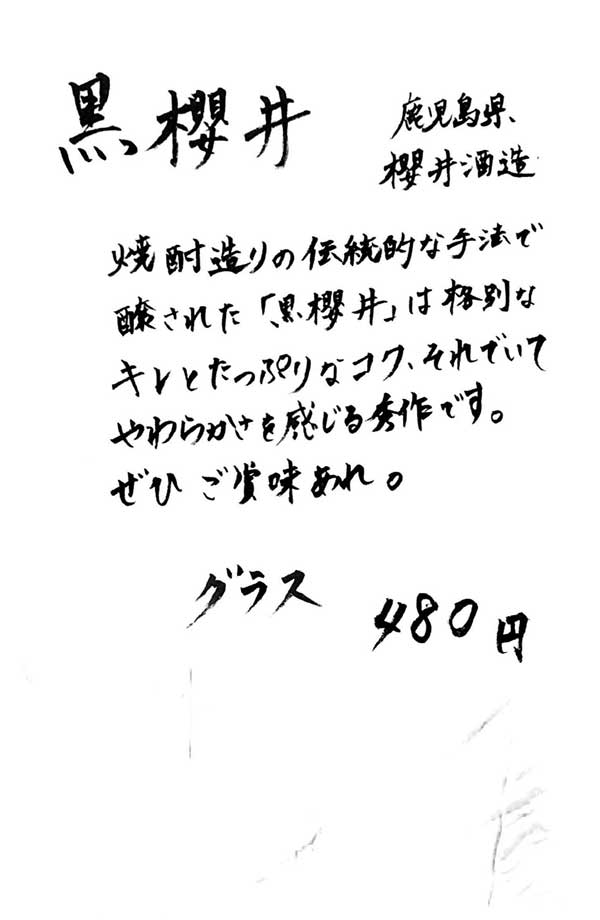 黒櫻井
鹿児島県、
櫻井酒造
焼酎造りの伝統的な手法で
醸された「黒櫻井」は格別な
キレとたっぷりなコク、それでいて
やわらかさを感じる秀作です。
ぜひ ご賞味あれ。
グラス 480円